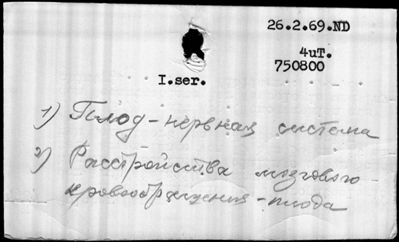 26.2.69.ND
4uT.
750800
I.ser.
1) Плод - нервная система
2) Расстройства мозгового
кровообращения - плода